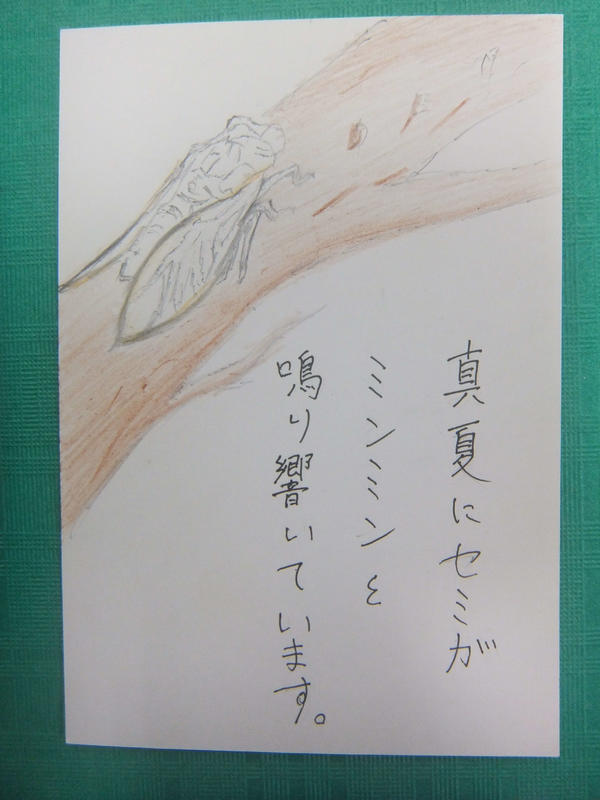 真夏にセミが
ミンミンと
鳴り響いています。